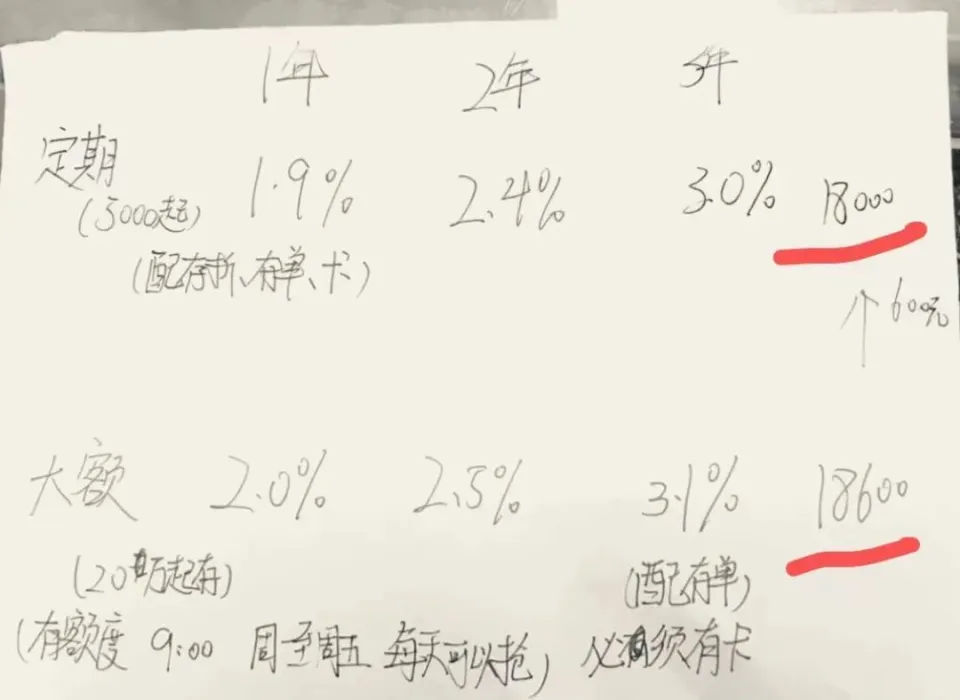 1年 2年 3年
定期 1.9% 2.4% 3.0% 18000
(5000起)
(配存折、存单、卡)
↑600元
大额 2.0% 2.5% 3.1% 18600
(20万起存) (配存单)
(有额度 9:00 周至周五 每天可以抢) 必须有卡